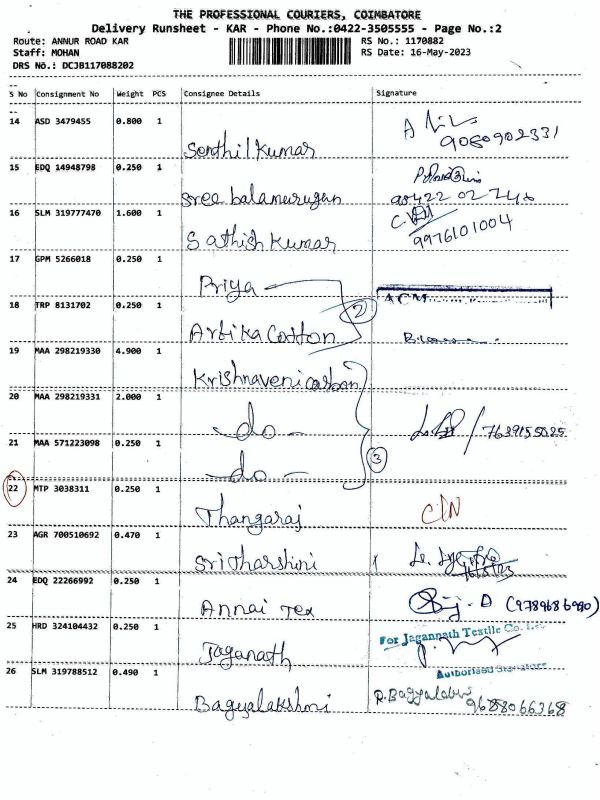 THE PROFESSIONAL COURIERS, COIMBATORE
Delivery Runsheet - KAR - Phone No.:0422-3505555 - Page No.:2
Route: ANNUR ROAD KAR RS No.: 1170882
Staff: MOHAN RS Date: 16-May-2023
DRS No.: DCJB117088202
S No Consignment No Weight PCS Consignee Details Signature
14 ASD 3479455 0.800 1 Senthil Kumar 9080902331
15 EDQ 14948798 0.250 1 Sree balamurugan 90422 02 746
16 SLM 319777470 1.600 1 Sathish Kumar 9976101004
17 GPM 5266018 0.250 1 Priya ACM
18 TRP 8131702 0.250 1 Arbika Cotton 2
19 MAA 298219330 4.900 1 Krishnaveni carbon
20 MAA 298219331 2.000 1 - do - 7639155025
21 MAA 571223098 0.250 1 - do - 3
22 MTP 3038311 0.250 1 Thangaraj
23 AGR 700510692 0.470 1 Sri Dharshini
24 EDQ 22266992 0.250 1 Annai Tex (9789686990)
25 HRD 324104432 0.250 1 Jaganath For Jagannath Textile Co.
Authorised Signature
26 SLM 319788512 0.490 1 Bagyalakshmi 9688066368